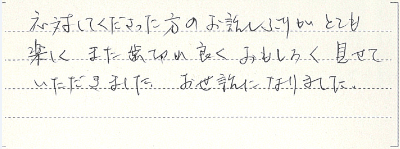 応対してくださった方のお話しぶりがとても
楽しく また歯切れ良く おもしろく 見せて
いただきました。 お世話になりました。